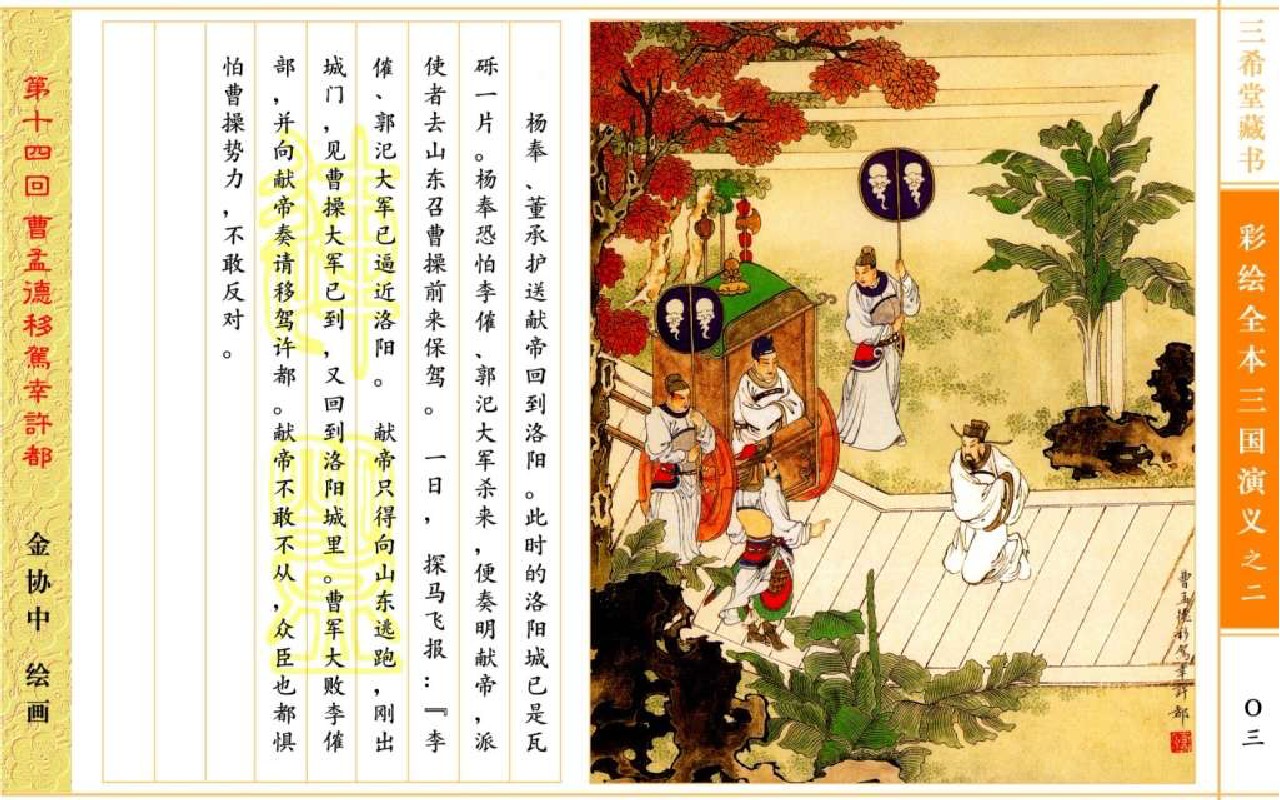 三希堂藏书
彩绘全本三国演义之二
〇三
曹孟德移駕幸許都
杨奉、董承护送献帝回到洛阳。此时的洛阳城已是瓦
砾一片。杨奉恐怕李傕、郭汜大军杀来，便奏明献帝，派
使者去山东召曹操前来保驾。一日，探马飞报：『李
傕、郭汜大军已逼近洛阳。献帝只得向山东逃跑，刚出
城门，见曹操大军已到，又回到洛阳城里。曹军大败李傕
部，并向献帝奏请移驾许都。献帝不敢不从，众臣也都惧
怕曹操势力，不敢反对。
第十四回 曹孟德移駕幸許都
金协中 绘画